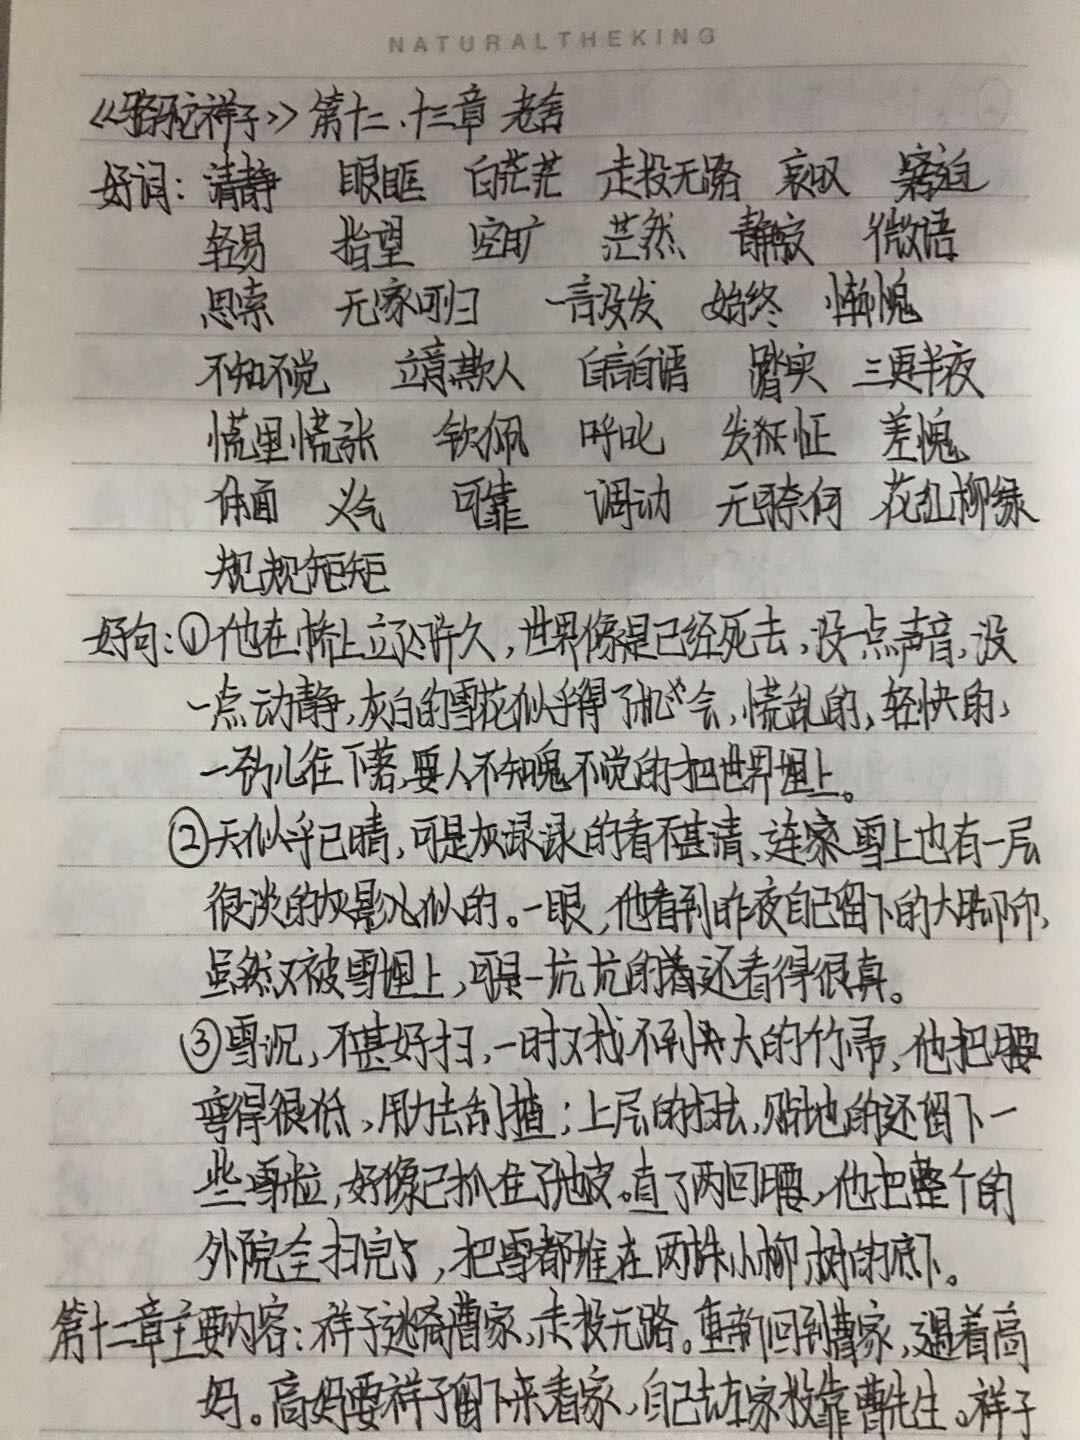 NATURALTHEKING
《骆驼祥子》第十二、十三章 老舍
好词：清静 眼眶 白茫茫 走投无路 哀叹 窘迫
轻易 指望 空旷 茫然 静寂 微语
思索 无家可归 一言没发 始终 惭愧
不知不觉 立意欺人 自言自语 踏实 三更半夜
慌里慌张 钦佩 呼叱 发怔怔 羞愧
体面 义气 可靠 调动 无可奈何 花红柳绿
规规矩矩
好句：①他在桥上立了许久，世界像是已经死去，没一点声音，没
一点动静，灰白的雪花似乎得了机会，慌乱的，轻快的，
一劲儿往下落，要人不知鬼不觉的把世界埋上。
②天似乎已晴，可是灰渌渌的看不甚清，连雪上也有一层
很淡的灰影似的。一眼，他看到昨夜自己留下的大脚印，
虽然又被雪埋上，可是一坑坑的还看得很真。
③雪沉，不甚好扫，一时又找不到大的竹帚，他把腰
弯得很低，用力去刮揸；上层的扫去，贴地的还留下一
些雪粒，好像已抓住了地皮。直了两回腰，他把整个的
外院全扫完了，把雪都堆在两株小柳树的底下。
第十二章主要内容：祥子逃离曹家，走投无路。重新回到曹家，遇着高
妈。高妈要祥子留下来看家，自己去左家投靠曹先生。祥子